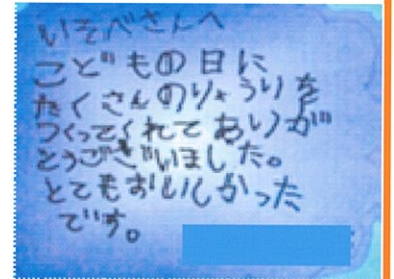 いそべさんへ
こどもの日に
たくさんのりょうりを
つくってくれてありが
とうございました。
とてもおいしかった
です。